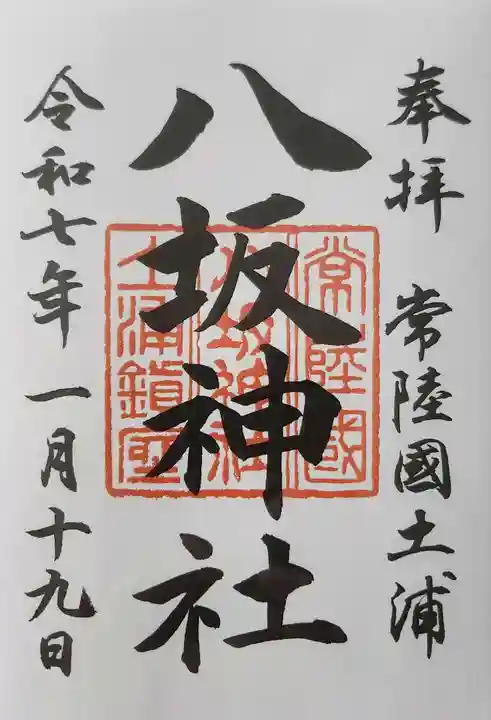 奉拝 常陸國土浦
八坂神社
常陸國
八坂神社
土浦鎮座
令和七年一月十九日